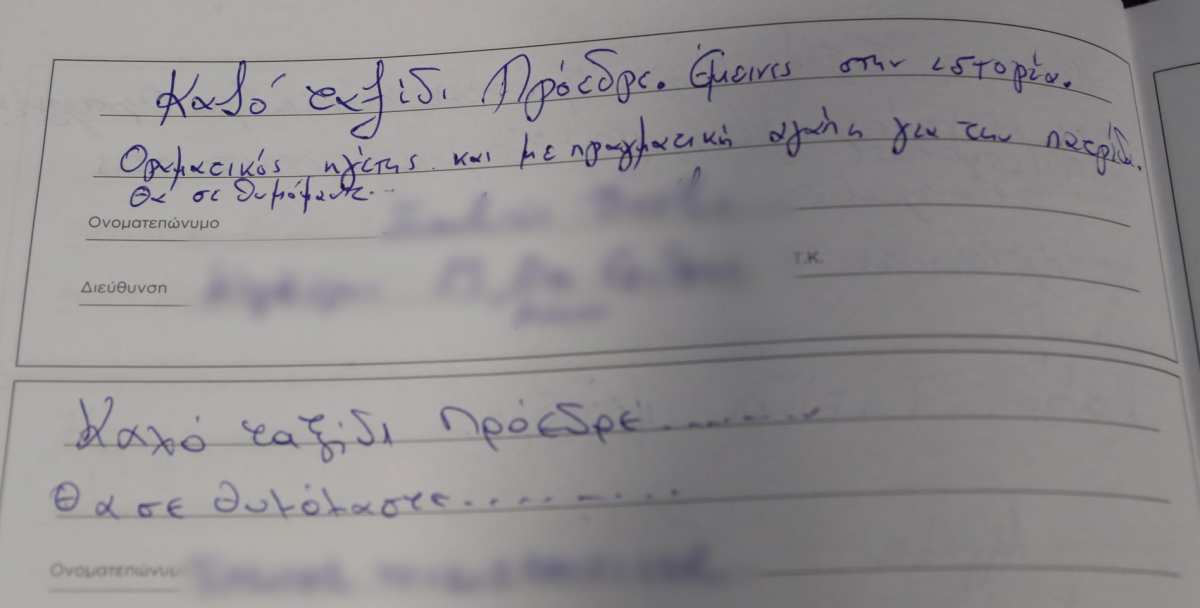 Καλό ταξίδι Πρόεδρε. Έμεινες στην ιστορία.
Οραματικός ηγέτης και με πραγματική αγάπη για την πατρίδα.
Θα σε θυμόμαστε...
Ονοματεπώνυμο
Διεύθυνση
Τ.Κ.
Καλό ταξίδι Πρόεδρε.........
Θα σε θυμόμαστε.........
Ονοματεπώνυ